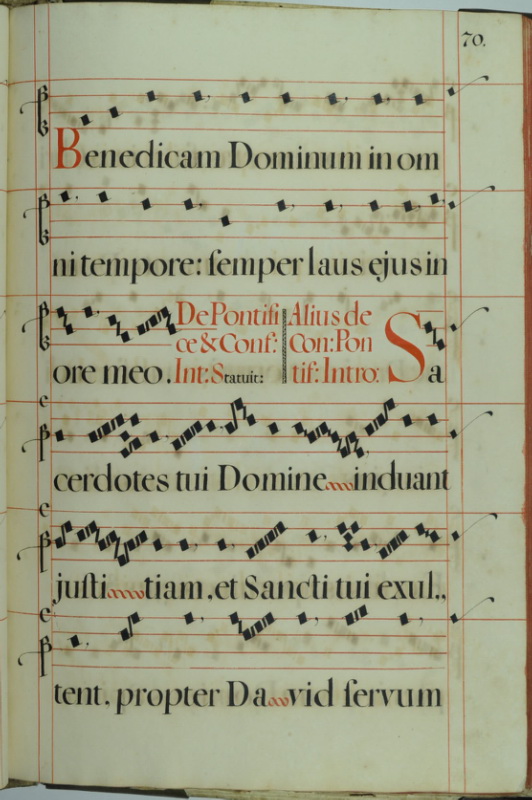 70.
Benedicam Dominum in om
ni tempore: semper laus ejus in
ore meo.
De Pontifi
ce & Conf:
Int: Statuit:
Alius de
Con: Pon
tif: Intro:
Sa
cerdotes tui Domine induant
justi tiam, et Sancti tui exul,,
tent, propter Da vid servum